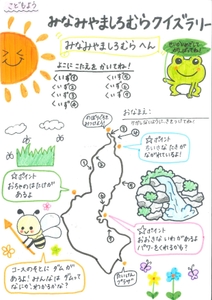 こどもよう
みなみやましろむらクイズラリー
みなみやましろむら へん
よこに こたえを かいてね!
くいず①
くいず②
くいず③
くいず④
くいず⑤
くいず⑥
くいず⑦
おなまえ:
☆ポイント
ちいさな たきが
ながれているよ!
☆ポイント
おちゃのはたけが
あるよ
☆ポイント
おおきな いわが あるよ
パワーをくれるかも?
コースのそとに ダムが
あるよ! みんなは ダムって
なにか、わかるかな?